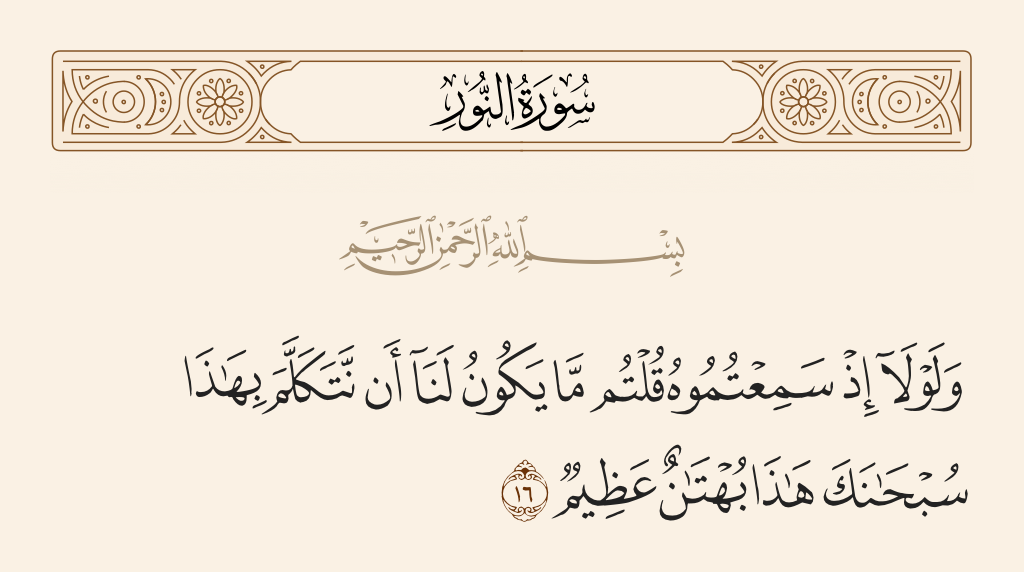 سُورَةُ النُّورِ
بِسْمِ ٱللَّهِ ٱلرَّحْمَٰنِ ٱلرَّحِيمِ
وَلَوْلَآ إِذْ سَمِعْتُمُوهُ قُلْتُم مَّا يَكُونُ لَنَآ أَن نَّتَكَلَّمَ بِهَٰذَا
سُبْحَٰنَكَ هَٰذَا بُهْتَٰنٌ عَظِيمٌ ١٦